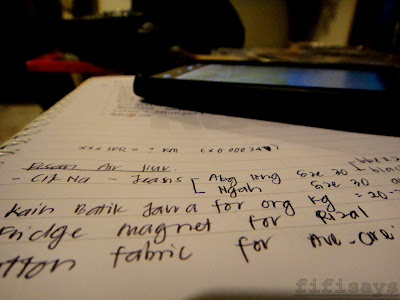 xxx IDR = ? RM (x 0.00034)
Pesan Air Nur
- Cik Na - Jeans [ Abg long size 30
Ngah size 30
Kain Batik Jawa for org kg = 20-
Fridge magnet for Rizal
otton fabric for me-
fifisays